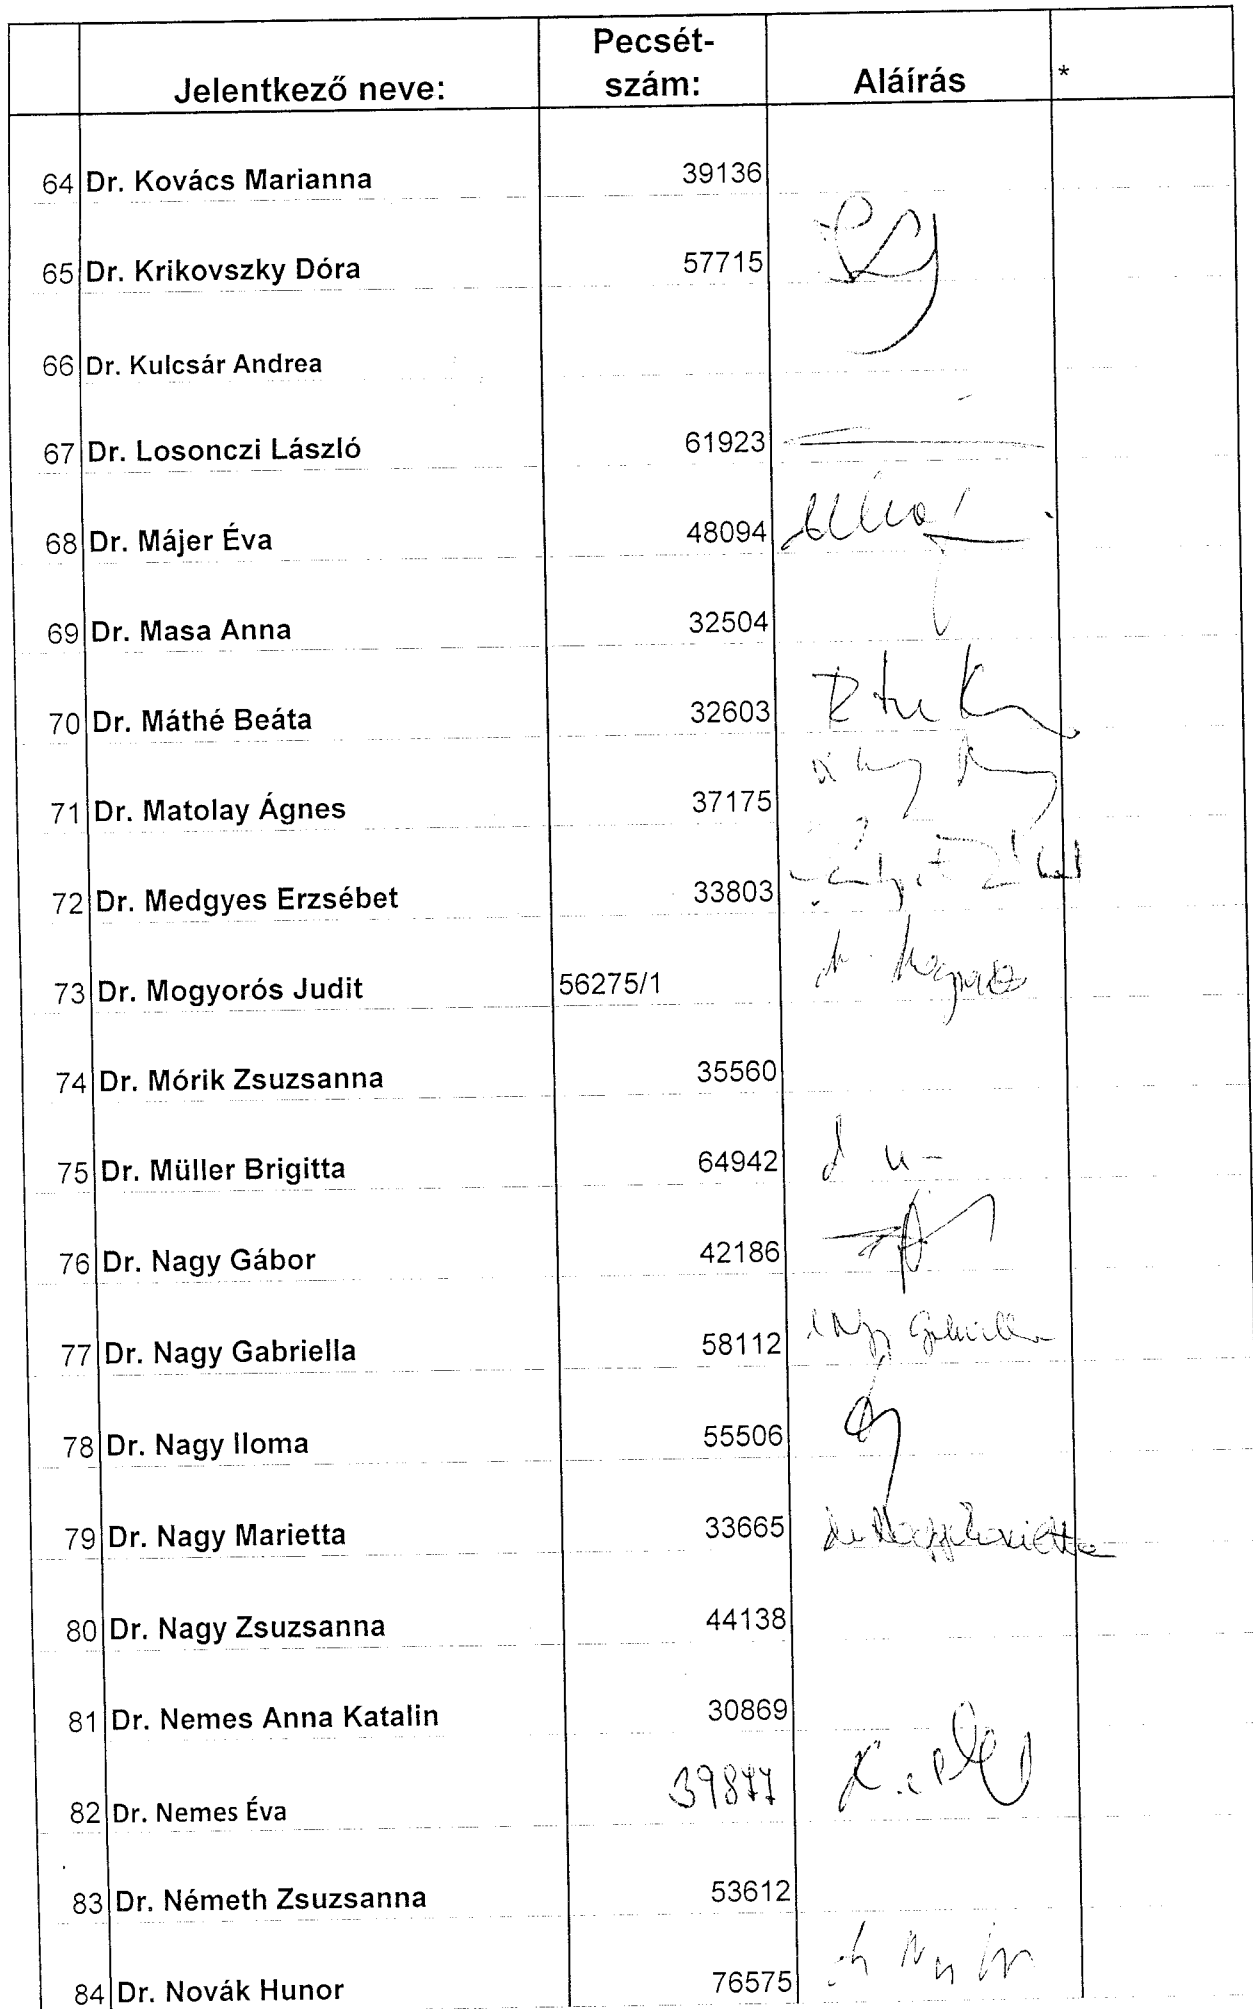 Jelentkező neve: Pecsét-szám: Aláírás *
64 Dr. Kovács Marianna 39136
65 Dr. Krikovszky Dóra 57715
66 Dr. Kulcsár Andrea
67 Dr. Losonczi László 61923
68 Dr. Májer Éva 48094
69 Dr. Masa Anna 32504
70 Dr. Máthé Beáta 32603
71 Dr. Matolay Ágnes 37175
72 Dr. Medgyes Erzsébet 33803
73 Dr. Mogyorós Judit 56275/1
74 Dr. Mórik Zsuzsanna 35560
75 Dr. Müller Brigitta 64942
76 Dr. Nagy Gábor 42186
77 Dr. Nagy Gabriella 58112 Nagy Gabriella
78 Dr. Nagy Iloma 55506
79 Dr. Nagy Marietta 33665 dr Nagy Marietta
80 Dr. Nagy Zsuzsanna 44138
81 Dr. Nemes Anna Katalin 30869
82 Dr. Nemes Éva 39877
83 Dr. Németh Zsuzsanna 53612
84 Dr. Novák Hunor 76575